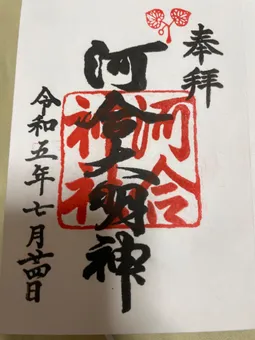 奉拝
河合大明神
河合神社
令和五年七月廿四日